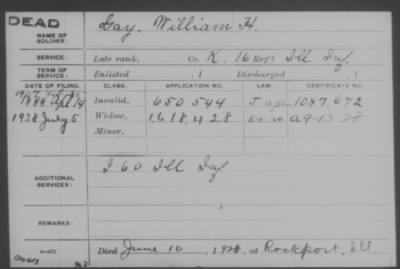 DEAD
Gay, William H.
NAME OF SOLDIER:
SERVICE:
Late rank, Co. K, 16 Reg't Ill Inf.
TERM OF SERVICE:
Enlisted , 1 Discharged , 1
DATE OF FILING. CLASS. APPLICATION NO. LAW. CERTIFICATE NO.
1888 Apl 14 Invalid, 650 544 1087,672
1928 July 5 Widow, 1,618,428 A9-13-28
Minor,
ADDITIONAL SERVICES:
I 60 Ill Inf
REMARKS:
Died June 10, 1928, at Rockport, Ill.